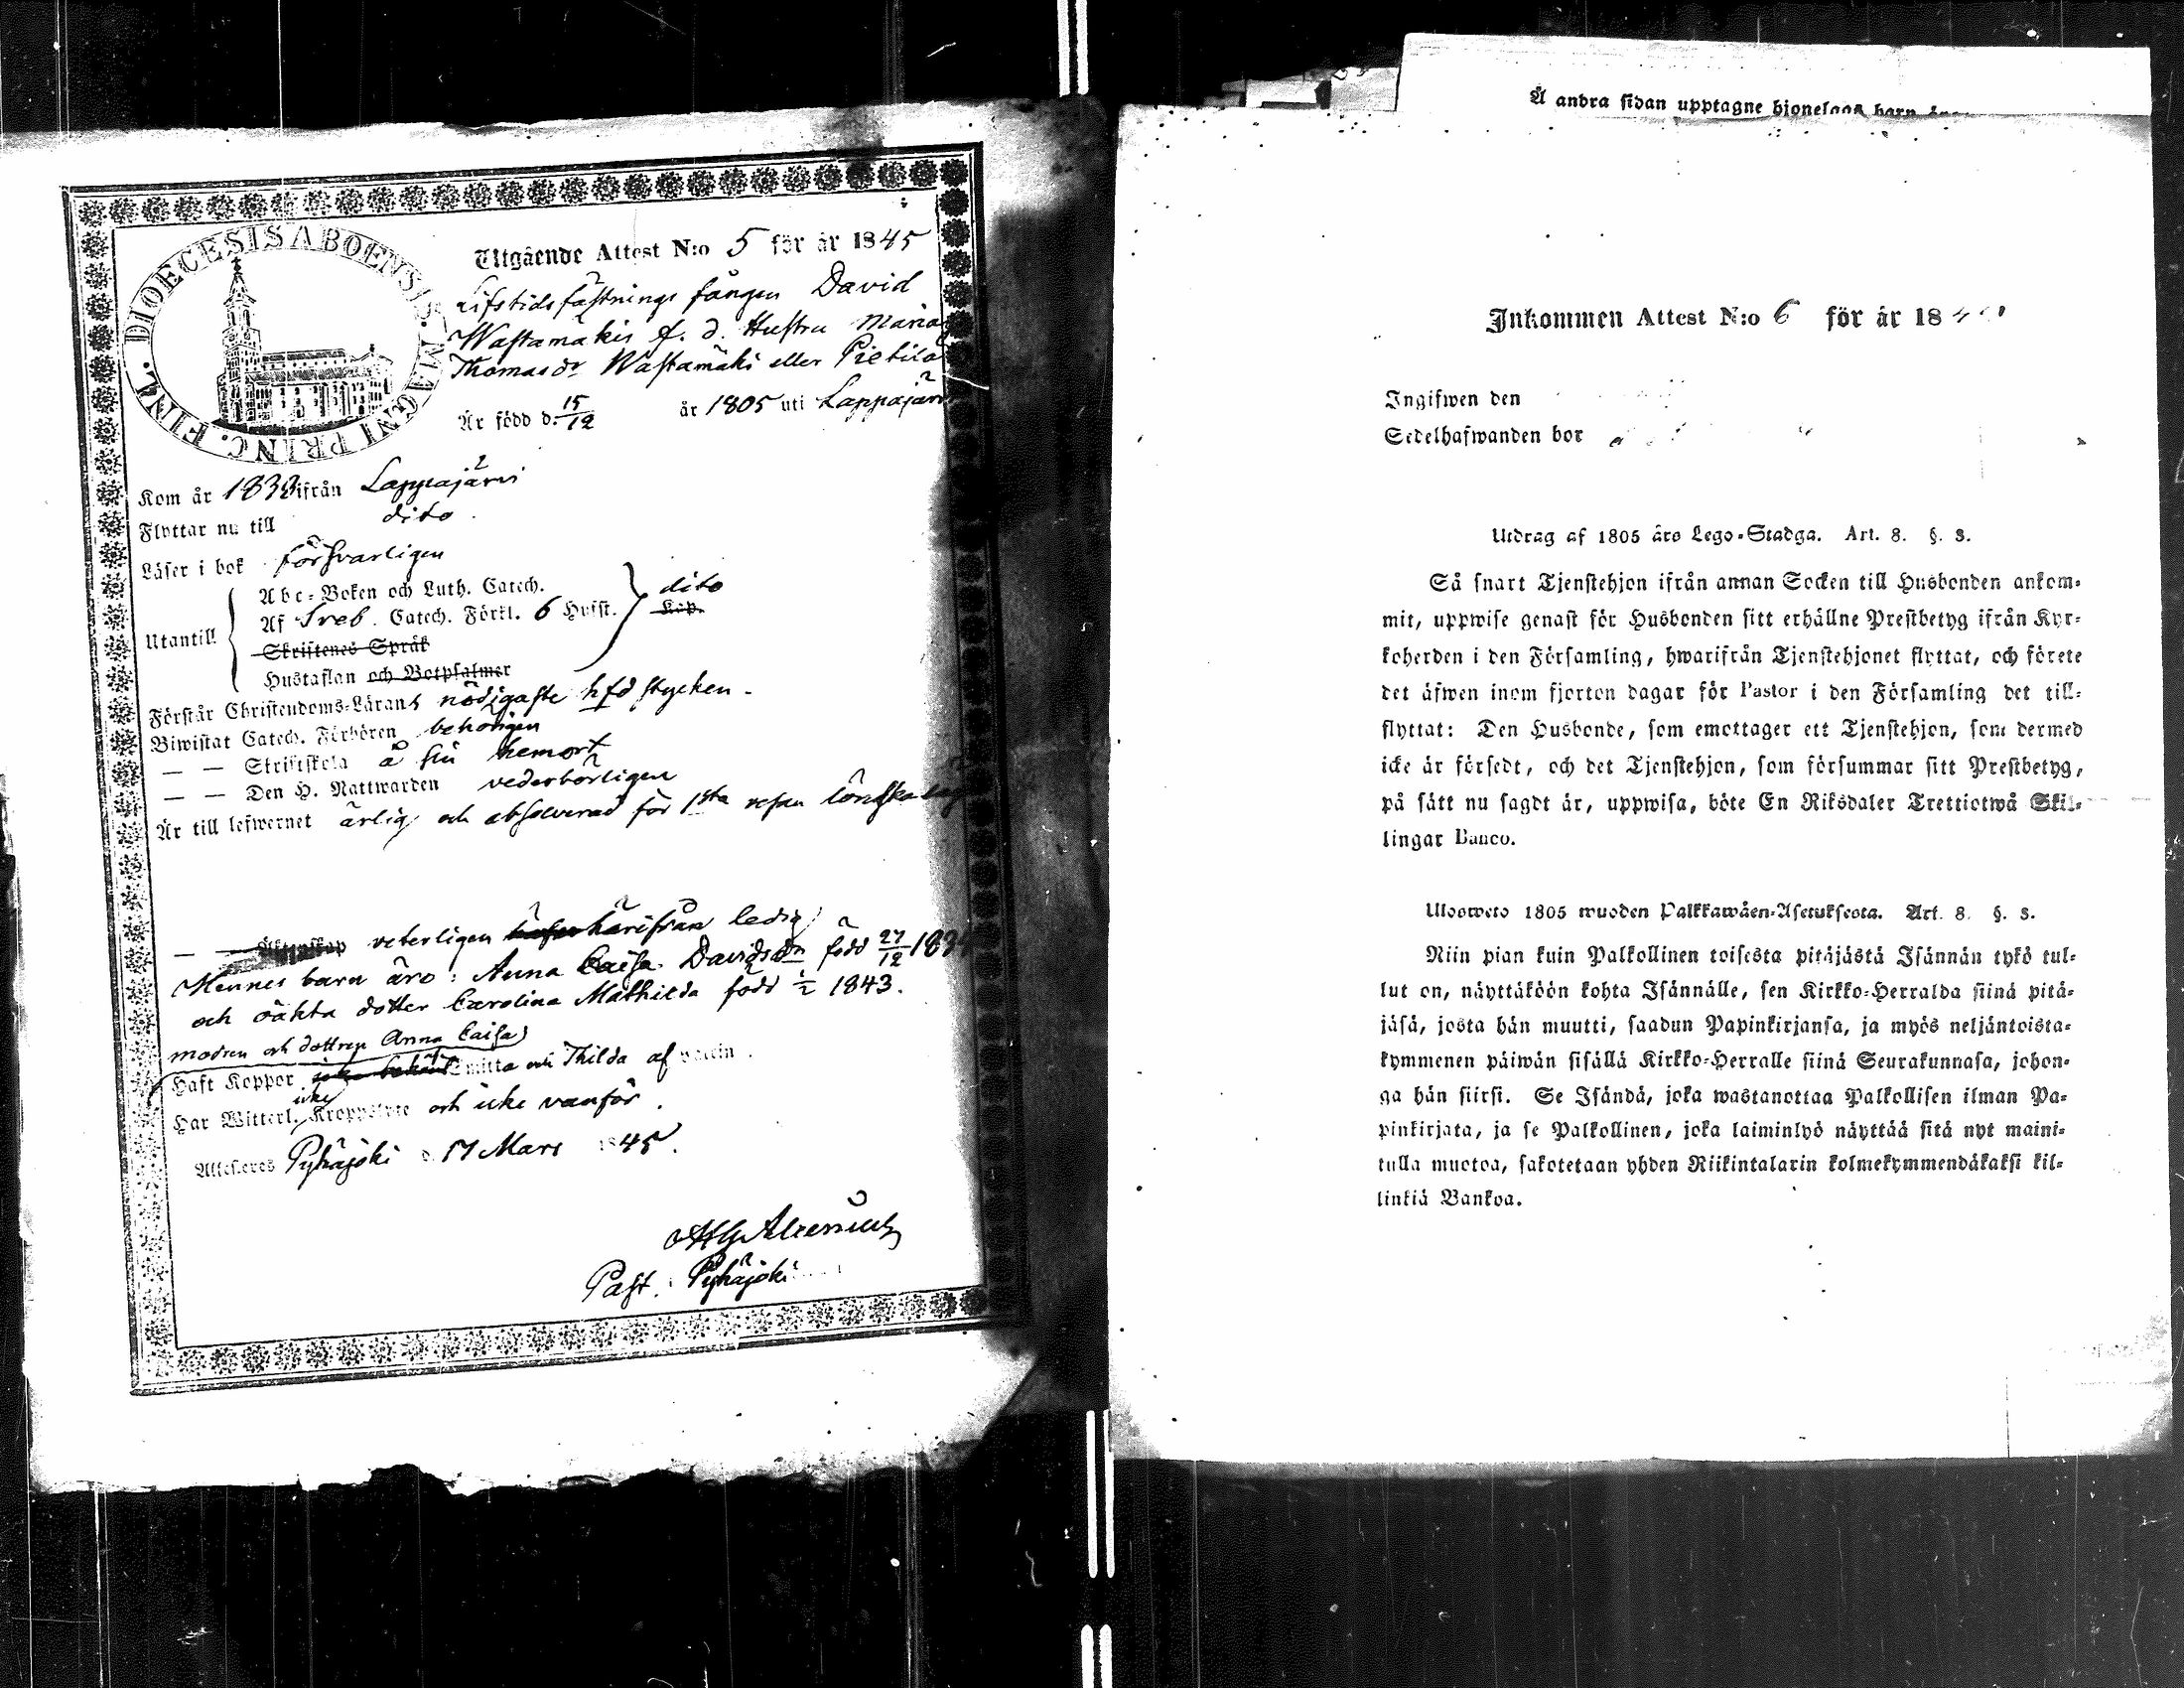 DIOECESIS ABOENSIS. MAGNI PRINC. FINL.
Utgående Attest N:o 5 för år 1845
Lifstidsfästnings fången David
Wastamäkis f. d. Hustru Maria
Thomasdr Wastamäki eller Pietilä
Är född d. 15/12 år 1805 uti Lappajärvi
Kom år 1838 ifrån Lappajärvi
Flyttar nu till dito
Läser i bok försvarligen
Utantill
Abc-Boken och Luth. Catech.
Af Sveb. Catech. Förkl. 6 Hufst.
dito
Kap.
Skriftenes Språk
Hustaflan och Botpsalmer
Förstår Christendoms-Lärans nödigaste hfdstycken.
Biwistat Catech. Förhören behörigen
— — Skriftskola å sin hemort
— — Den H. Nattwarden vederbörligen
Är till lefwernet ärlig och absolverad för 1sta resan lönskaläge
— — Äktenskap veterligen härifrån ledig
Hennes barn äro: Anna Caisa Davidsdr född 27/12
och oäkta dotter Carolina Mathilda född ½ 1843.
modren och dottren Anna Caisa
Haft Koppor Smitta och Thilda af vaccin.
Har Witterl. icke Kroppslyte och icke vanför.
Attesteras Pyhäjoki d. 17 Mars 1845.
Past. i Pyhäjoki
Å andra sidan upptagne hjonelags barn
Inkommen Attest N:o 6 för år 18
Ingifwen den
Sedelhafwanden bor
Utdrag af 1805 års Lego-Stadga. Art. 8. §. 3.
Så snart Tjenstehjon ifrån annan Socken till Husbonden ankom-
mit, uppwise genast för Husbonden sitt erhållne Prestbetyg ifrån Kyr-
koherden i den Församling, hwarifrån Tjenstehjonet flyttat, och förete
det äfwen inom fjorton dagar för Pastor i den Församling det till-
flyttat: Den Husbonde, som emottager ett Tjenstehjon, som dermed
icke är försedt, och det Tjenstehjon, som försummar sitt Prestbetyg,
på sätt nu sagdt är, uppwisa, böte En Riksdaler Trettiotwå Skil-
lingar Banco.
Ulosweto 1805 wuoden Palkkawäen-Asetuksesta. Art. 8. §. 3.
Niin pian kuin Palkollinen toisesta pitäjästä Isännän tykö tul-
lut on, näyttäköön kohta Isännälle, sen Kirkko-Herralda siinä pitä-
jäsä, josta hän muutti, saadun Papinkirjansa, ja myös neljäntoista-
kymmenen päiwän sisällä Kirkko-Herralle siinä Seurakunnasa, johon-
ga hän siirsi. Se Isändä, joka wastanottaa Palkollisen ilman Pa-
pinkirjata, ja se Palkollinen, joka laiminlyö näyttää sitä nyt maini-
tulla muotoa, sakotetaan yhden Riikintalarin kolmekymmendäkaksi kil-
linkiä Bankoa.